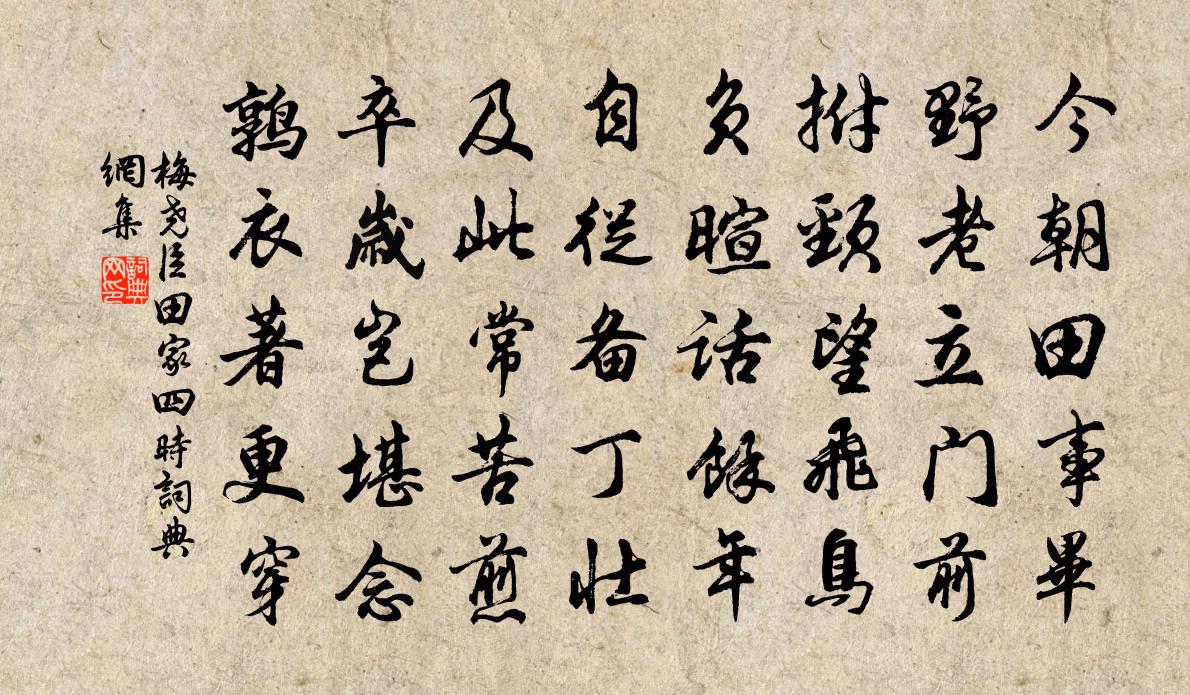 今朝田事畢
野老立门前
拊頸望飛鳥
负暄話餘年
自從备丁壯
及此常苦煎
卒歲豈堪念
鶉衣著更穿
梅尧臣田家四時詞典
網集
詞典
网印